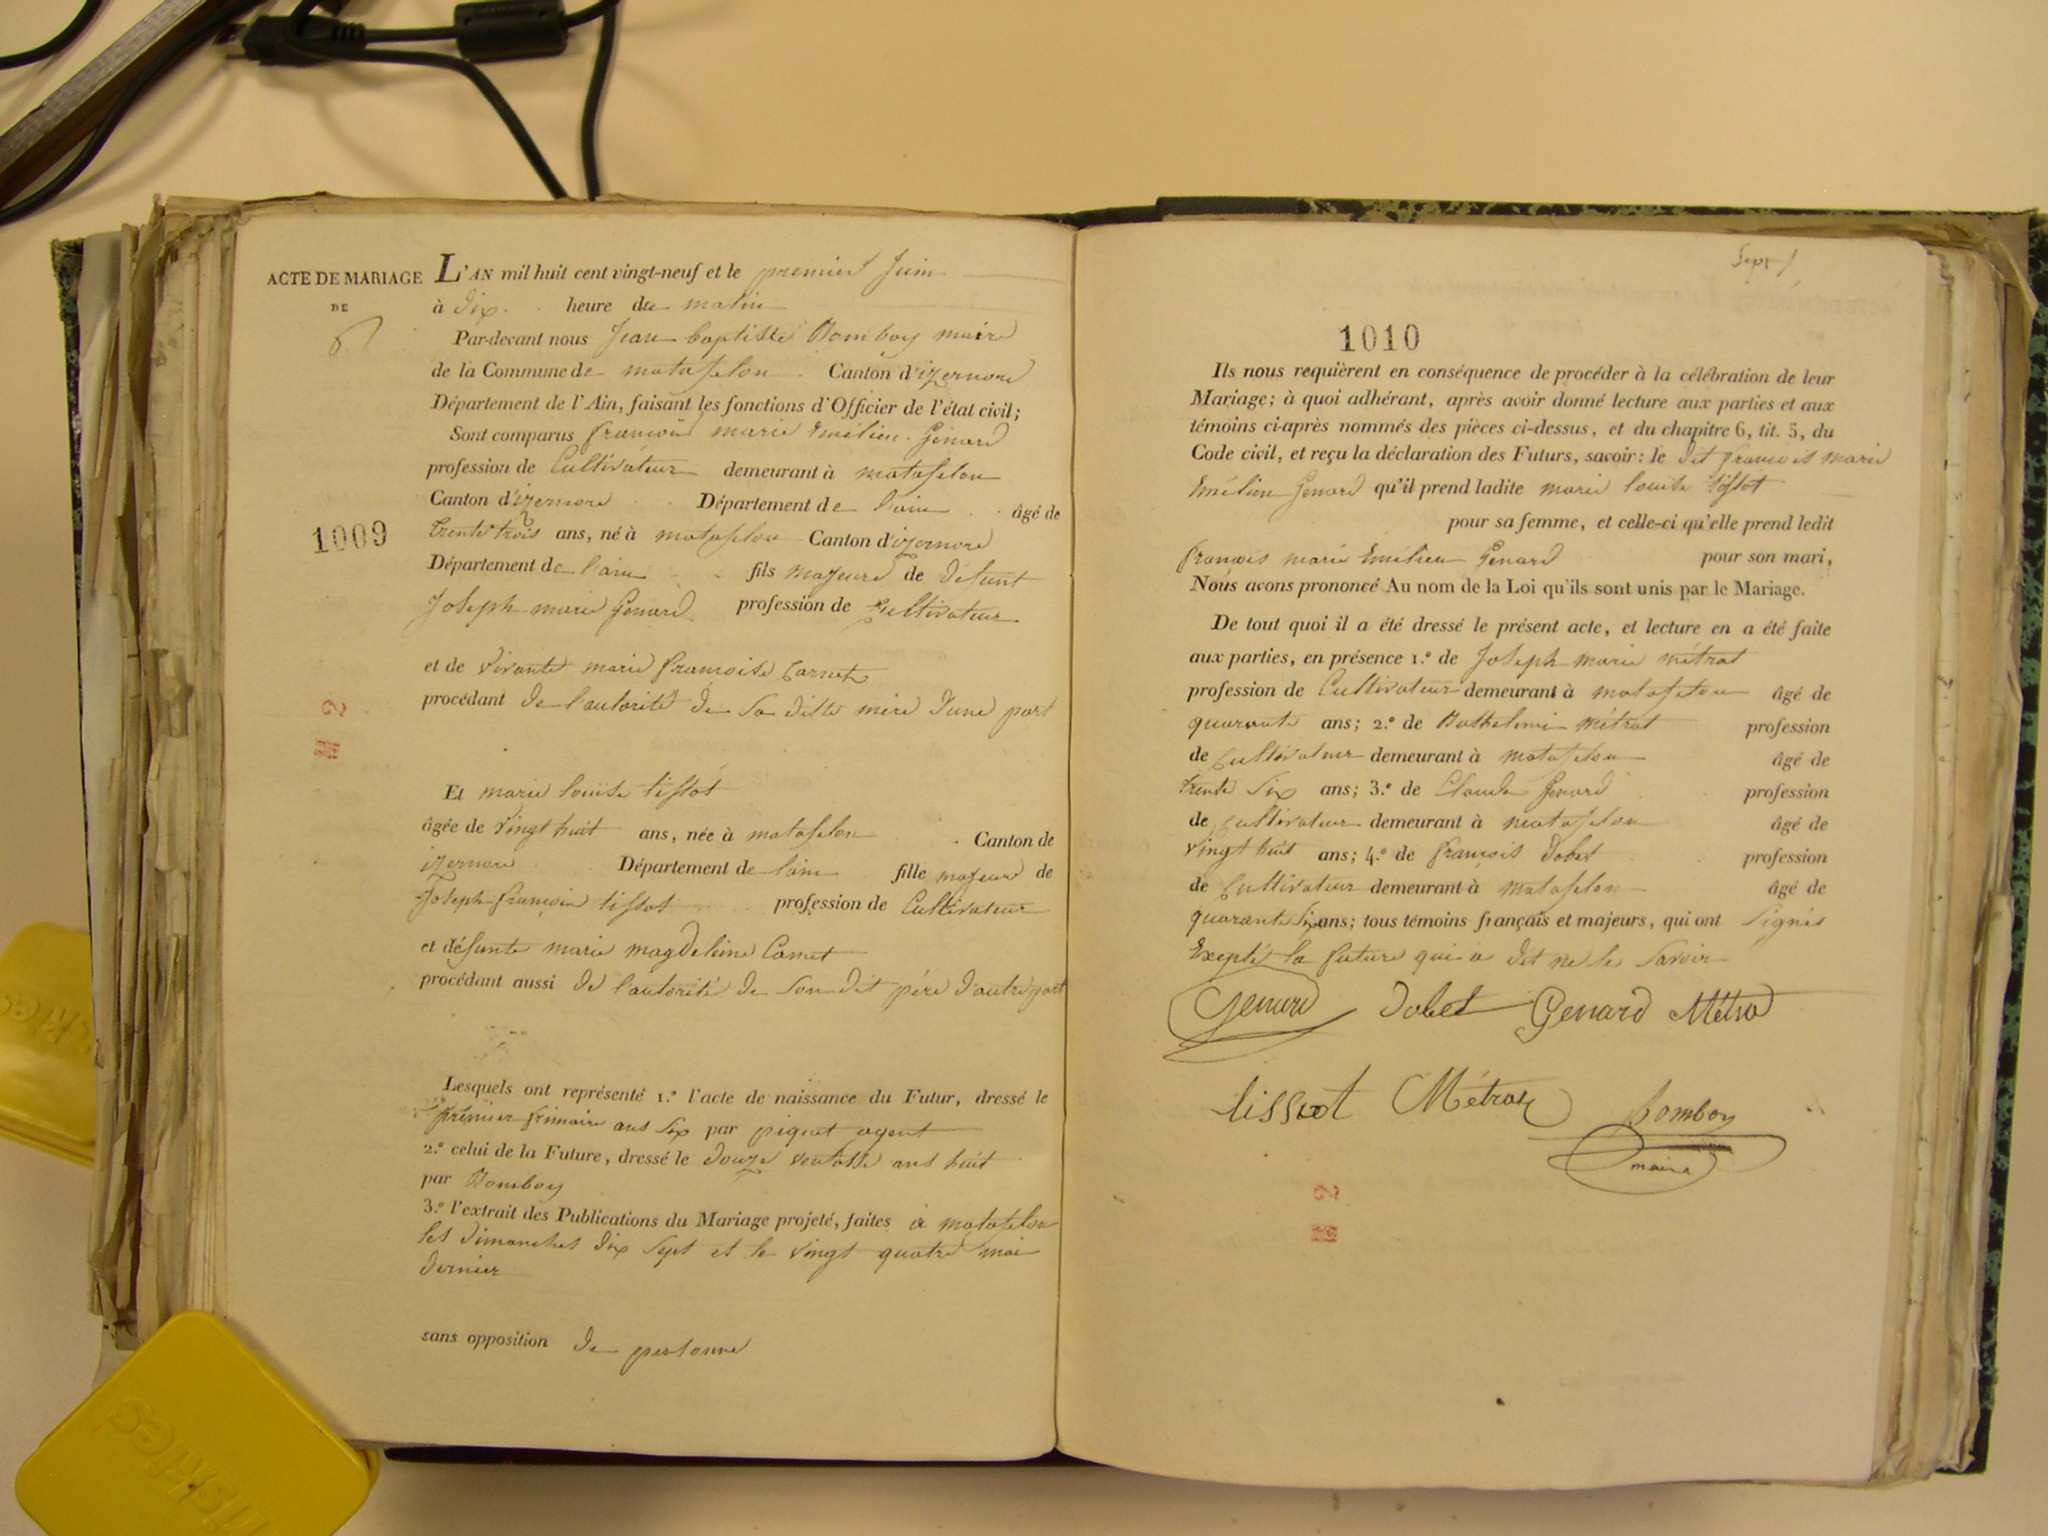 ACTE DE MARIAGE
DE
6
1009
L'AN mil huit cent vingt-neuf et le premier Juin
à dix heure du matin
Par-devant nous Jean baptiste Bomboy maire
de la Commune de matafelon Canton d'izernore
Département de l'Ain, faisant les fonctions d'Officier de l'état civil;
Sont comparus françois marie Emélien Genard
profession de Cultivateur demeurant à matafelon
Canton d'izernore Département de l'ain âgé de
trente trois ans, né à matafelon Canton d'izernore
Département de l'ain fils majeure de défunt
Joseph marie Genard profession de Cultivateur
et de vivante marie françoise
procédant de l'autorité de sa ditte mère d'une part
Et marie louise tissot
âgée de vingt huit ans, née à matafelon Canton de
izernore Département de l'ain fille majeure de
Joseph françois tissot profession de Cultivateur
et défunte marie magdeleine
procédant aussi de l'autorité de son dit père d'autre part
Lesquels ont représenté 1.º l'acte de naissance du Futur, dressé le
premier frimaire ans six par piquet agent
2.º celui de la Future, dressé le douze ventosse ans huit
par Bomboy
3.º l'extrait des Publications du Mariage projeté, faites à matafelon
les dimanches dix sept et le vingt quatre mai
dernier
sans opposition de personne
Sept
1010
Ils nous requièrent en conséquence de procéder à la célébration de leur
Mariage; à quoi adhérant, après avoir donné lecture aux parties et aux
témoins ci-après nommés des pièces ci-dessus, et du chapitre 6, tit. 5, du
Code civil, et reçu la déclaration des Futurs, savoir: le dit françois marie
Emélien Genard qu'il prend ladite marie louise tissot
pour sa femme, et celle-ci qu'elle prend ledit
françois marie Emélien Genard pour son mari,
Nous avons prononcé Au nom de la Loi qu'ils sont unis par le Mariage.
De tout quoi il a été dressé le présent acte, et lecture en a été faite
aux parties, en présence 1.º de Joseph marie métrat
profession de Cultivateur demeurant à matafelon âgé de
quarante ans; 2.º de Bathelemi métrat profession
de Cultivateur demeurant à matafelon âgé de
trente six ans; 3.º de Claude Genard profession
de Cultivateur demeurant à matafelon âgé de
vingt huit ans; 4.º de françois dobet profession
de Cultivateur demeurant à matafelon âgé de
quarante six ans; tous témoins français et majeurs, qui ont signés
Excepté la future qui a dit ne le savoir
Genard Dobet Genard Métra
tissot Métrat Bomboy
maire